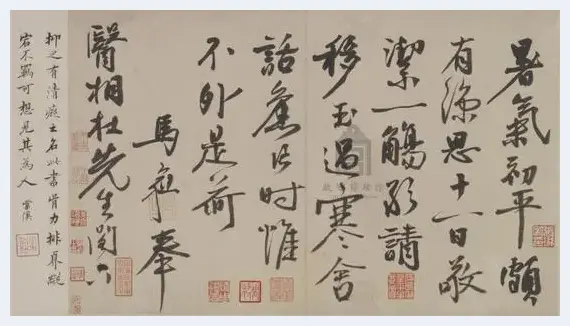 暑氣初平頗
有涼思十一日敬
潔一觴敢請
移玉過寒舍
話舊片時惟
不外是荷
馬愈奉
醫相杜先生閣下
抑之有清癡之名此書骨力排奡縱
宕不羈可想見其為人 雲溪